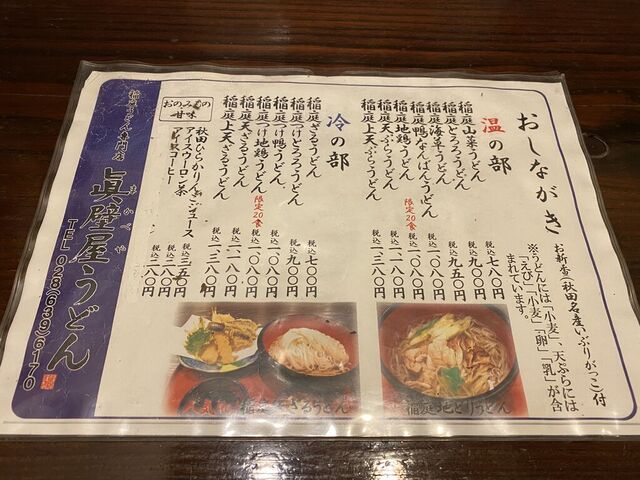 おしながき
お新香(秋田名産いぶりがっこ)付
※うどんには「小麦」、天ぷらには
「えび」「小麦」「卵」「乳」が含
まれています。
温の部
稲庭山菜うどん 税込 七八〇円
稲庭とろろうどん 税込 九〇〇円
稲庭海草うどん 税込 九五〇円
稲庭鴨なんばんうどん 税込
稲庭地鶏うどん 限定20食 税込
稲庭天ぷらうどん 税込 一一八〇円
稲庭上天ぷらうどん 税込 一三八〇円
冷の部
稲庭ざるうどん 税込 七〇〇円
稲庭つけとろろうどん 税込 九〇〇円
稲庭つけ鴨うどん 税込 一〇八〇円
稲庭つけ地鶏うどん 限定20食 税込 一〇八〇円
稲庭天ざるうどん 税込 一一八〇円
稲庭上天ざるうどん 税込 一三八〇円
おのみもの
甘味
秋田ひらかりんごジュース 税込 三五〇円
アイスウーロン茶 税込 二〇〇円
コーヒー 税込 二八〇円
稲庭うどん専門店
まかべや
眞壁屋うどん
TEL 028(639)6170
稲庭天ざるうどん
稲庭地どりうどん